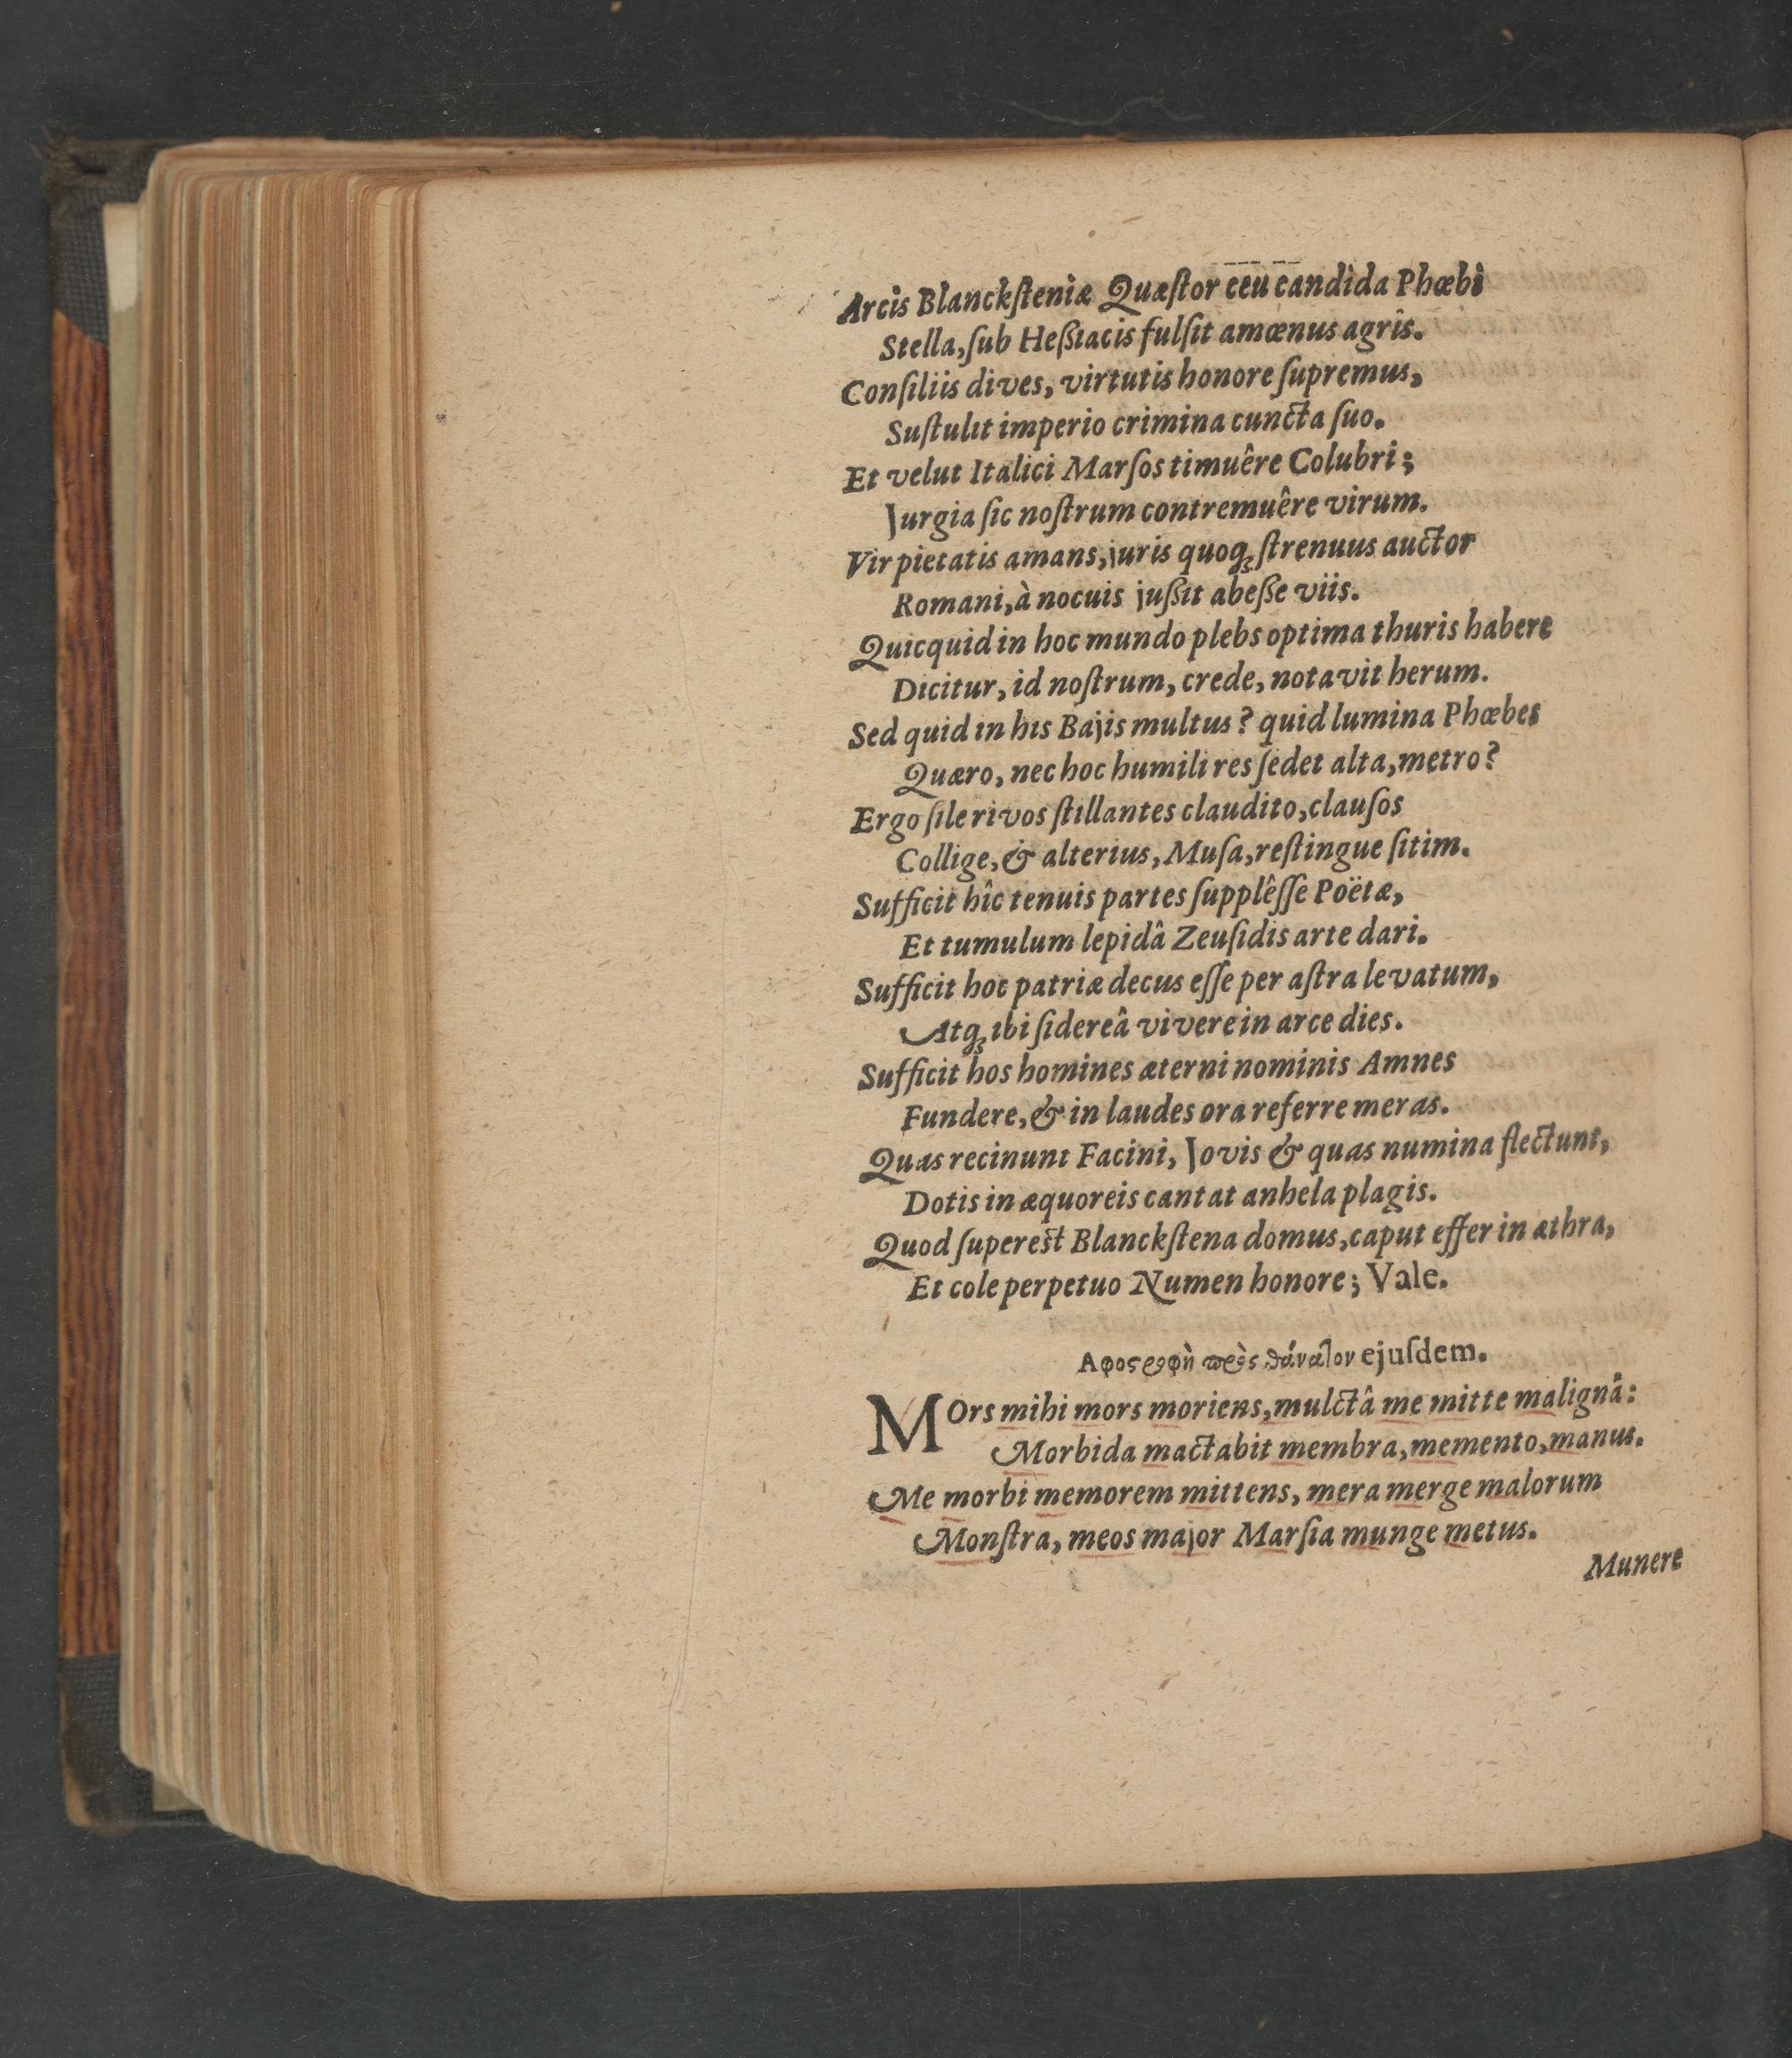 Arcis Blanckſteniæ Quæſtor ceu candida Phœbi
Stella, ſub Heßiacis fulſit amœnus agris.
Conſiliis dives, virtutis honore ſupremus,
Suſtulit imperio crimina cuncta ſuo.
Et velut Italici Marſos timuêre Colubri;
Jurgia ſic noſtrum contremuêre virum.
Vir pietatis amans, juris quoqꝫ ſtrenuus auctor
Romani, à nocuis jußit abeße viis.
Quicquid in hoc mundo plebs optima thuris habere
Dicitur, id noſtrum, crede, notavit herum.
Sed quid in his Bajis multus? quid lumina Phœbes
Quæro, nec hoc humili res ſedet alta, metro?
Ergo ſile rivos ſtillantes claudito, clauſos
Collige, & alterius, Muſa, reſtingue ſitim.
Sufficit hîc tenuis partes ſupplêſſe Poëtæ,
Et tumulum lepidâ Zeuſidis arte dari.
Sufficit hoc patriæ decus eſſe per aſtra levatum,
Atqꝫ ibi ſidereâ vivere in arce dies.
Sufficit hos homines æterni nominis Amnes
Fundere, & in laudes ora referre meras.
Quas recinunt Facini, Jovis & quas numina flectunt,
Dotis in æquoreis cantat anhela plagis.
Quod ſupereſt Blanckſtena domus, caput effer in æthra,
Et cole perpetuo Numen honore; Vale.
Αφοςροφὴ πρὸς θάναἸον ejuſdem.
MOrs mihi mors moriens, mulctâ me mitte malignâ:
Morbida mactabit membra, memento, manus.
Me morbi memorem mittens, mera merge malorum
Monſtra, meos major Marſia munge metus.
Munere